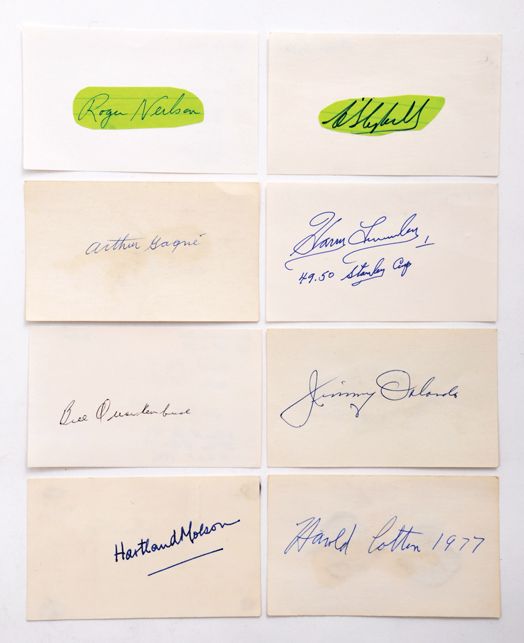 Roger Neilson
Arthur Gagné
Harry Lumley 1
49.50 Stanley Cup
Bill Quackenbush
Jimmy Orlando
Hartland Molson
Harold Cotton 1977